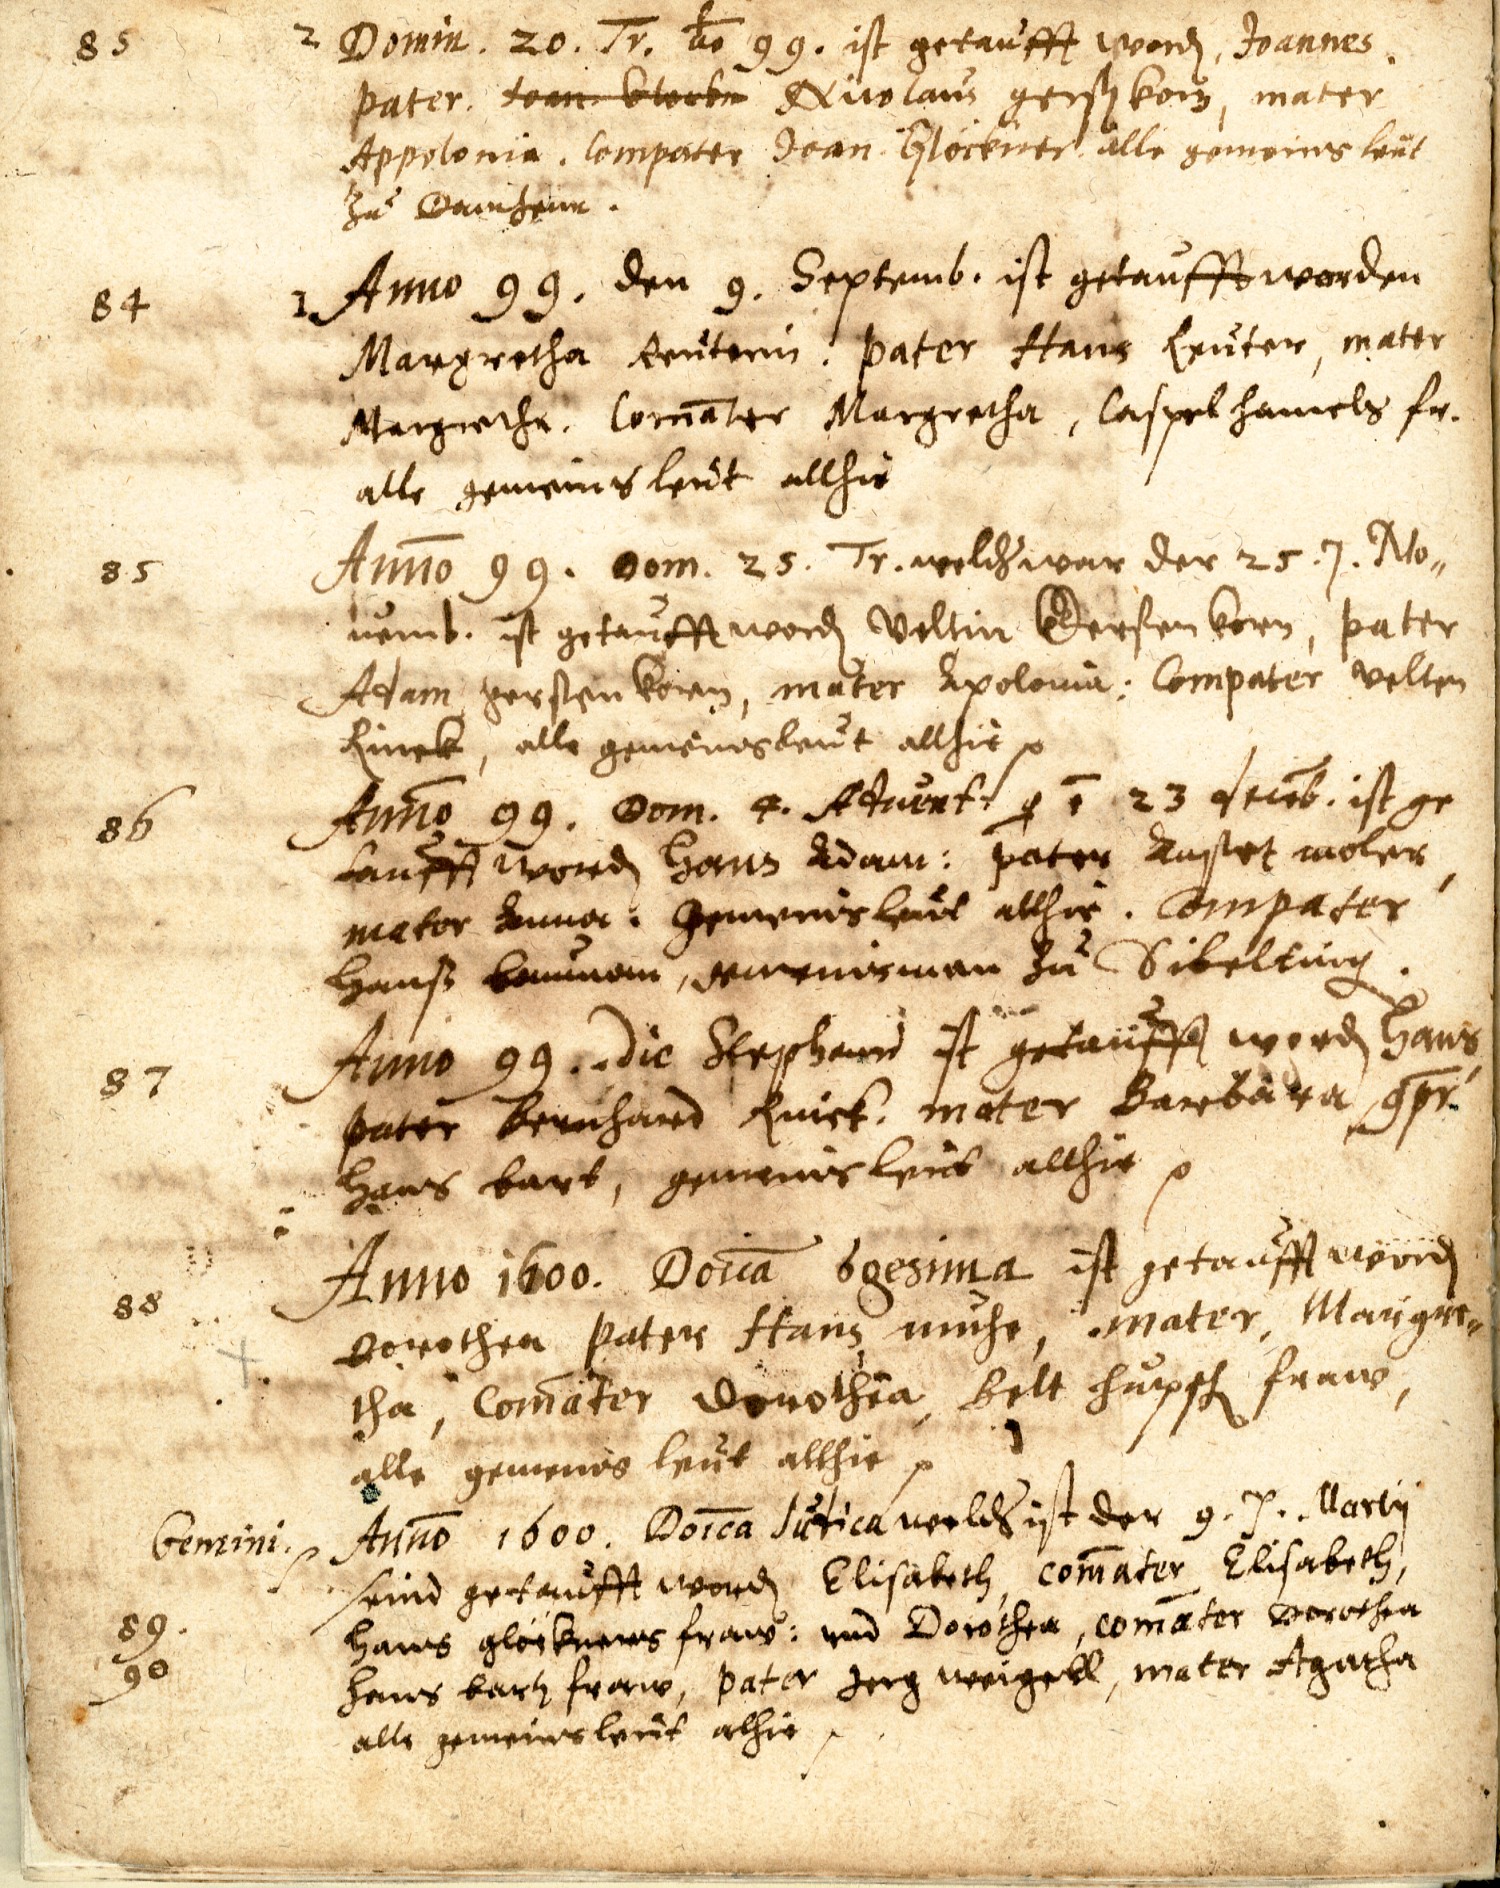 85 2 Domin. 20. Tr. ao 99. ist getaufft word, Joannes.
pater. Nicolaus gerstkorn, mater
Appolonia. Compater Joan. Glöckner. alle gemeins leut
zu Damheim.
84 1. Anno 99. den 9. Septemb. ist getaufft worden
Margretha Reuterin. pater Hans Reuter, mater
Margretha. Comater Margretha, Caspel hamels fr.
alle gemeins leut allhie
85 Anno 99. Dom. 25. Tr. welchs war der 25. No„
uemb. ist getaufft word Veltin Gersten korn, pater
Adam gersten korn, mater Apolonia: Compater Velten
Rinck, alle gemeinsleut allhie
86 Anno 99. Dom. 4. Aduent. 23 decemb. ist ge
taufft word Hans Adam: pater moler,
mater Anna. Gemeinsleut allhie. Compater
Hanß bauman, gemeinsman zu Sibelting.
87 Anno 99. die Stephani ist getaufft word Hans,
pater bernhard Rinck. mater Barbara,
Hans bart, gemeinsleut allhie
88 Anno 1600. Doica 6gesima ist getaufft word
Dorothea pater Hans muhe, mater, Margre„
tha, Comater Dorothea, Belt fraw,
alle gemeins leut allhie
Gemini. Anno 1600. Doica Judica welchs ist der 9. Martij
seind getaufft word Elisabeth, comater Elisabeth,
89. hans glöckners fraw: und Dorothea, comater Dorothea
90 hans bartz fraw, pater Jerg weigell, mater Agatha
alle gemeinsleut alhie